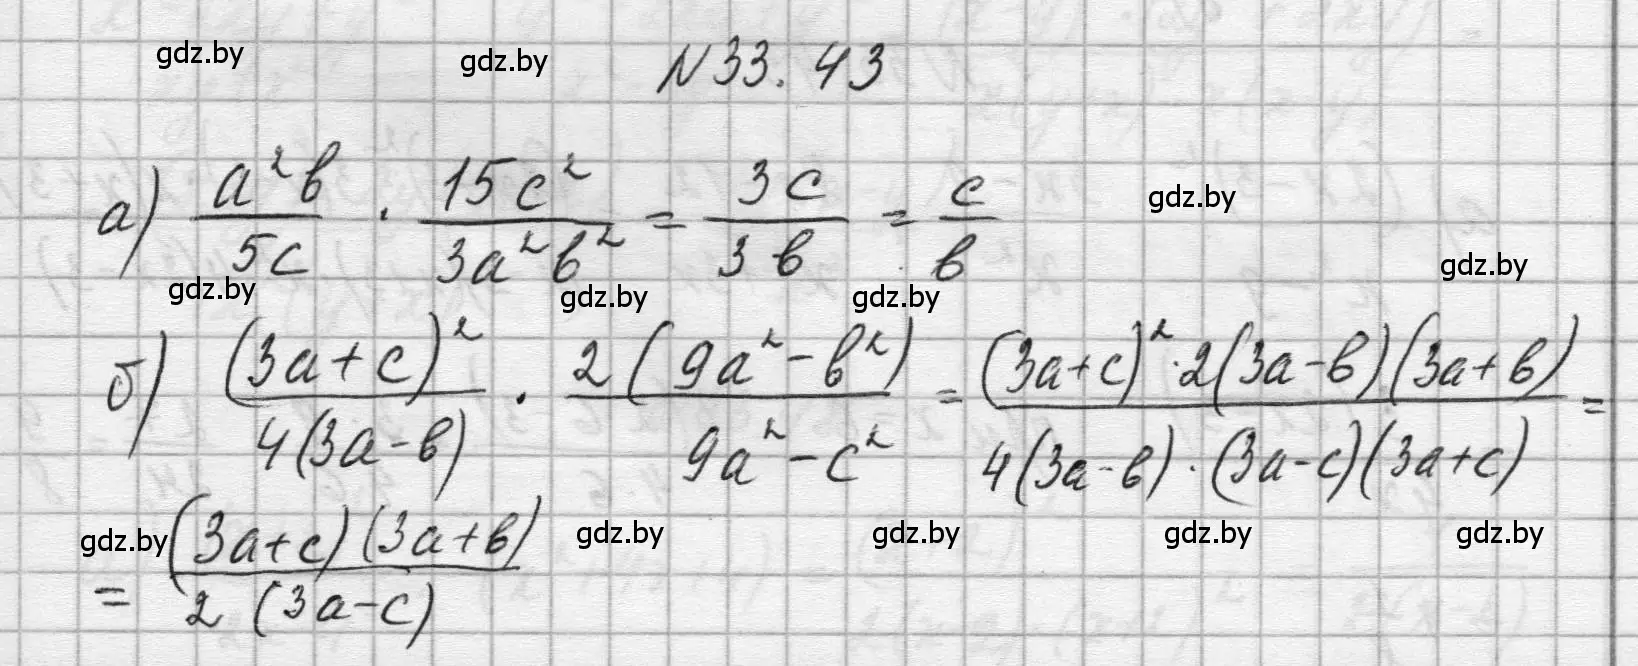 gdz.by gdz.by N 33.43
а) a²b/5c · 15c²/3a²b² = 3c/3b = c/b gdz.by gdz.by
gdz.by gdz.by gdz.by
б) (3a+c)²/4(3a-b) · 2(9a²-b²)/9a²-c² = (3a+c)²·2(3a-b)(3a+b)/4(3a-b)·(3a-c)(3a+c) =
gdz.by gdz.by gdz.by gdz.by gdz.by
= (3a+c)(3a+b)/2(3a-c)